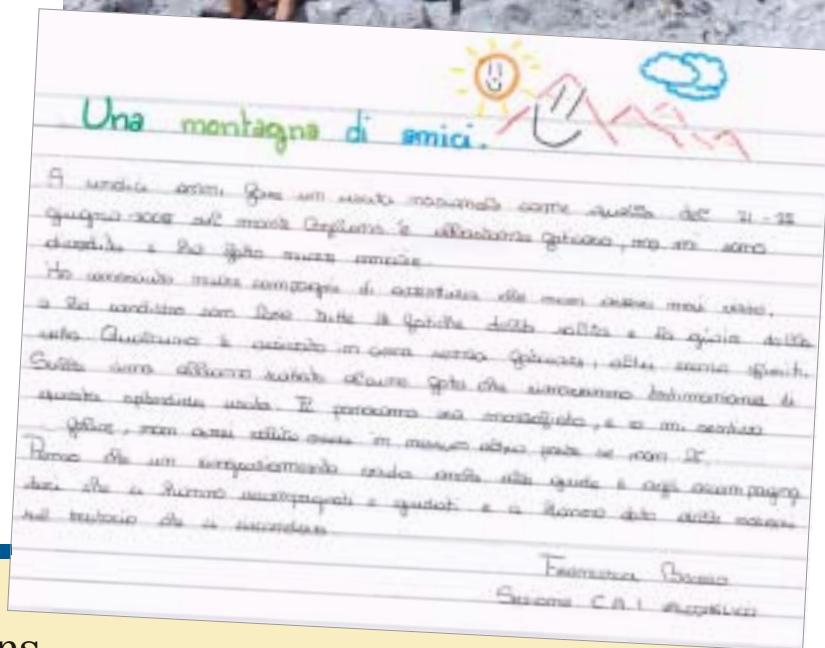 Una montagna di amici.
A undici anni fare un uscita nazionale come quella del 21-22
giugno 2008 sul monte è abbastanza faticoso, ma mi sono
divertita e ho fatto nuove amicizie.
Ho conosciuto nuovi compagni di avventura che non avevo mai visto,
e ho condiviso con loro tutte le fatiche della salita e la gioia della
vetta. Qualcuno è arrivato in cima senza faticare, altri sfiniti.
Sulla cima abbiamo scattato alcune foto che rimarranno testimonianza di
questa splendida uscita. Il panorama era mozzafiato, e io mi sentivo
felice, non avrei voluto essere in nessun altra parte se non lì.
Penso che un ringraziamento vada anche alle guide e agli accompagna
tori che ci hanno accompagnati e guidati e ci hanno dato delle nozioni
sul territorio che ci circondava.
Francesca
Sezione C.A.I.
ns